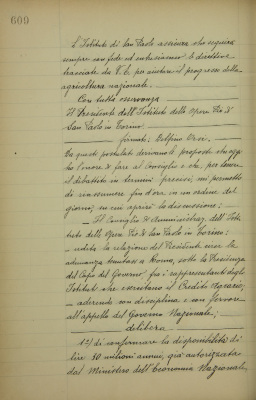 609
L'Istituto di San Paolo assicura che seguirà
sempre con fede ed entusiasmo le direttive
tracciate da V.E. per aiutare il progresso della
agricoltura nazionale.
Con tutta osservanza
Il Presidente dell'Istituto delle Opere Pie di
San Paolo in Torino
firmato: Delfino Orsi.
Da questi postulati derivano le proposte che oggi
ho l'onore di fare al Consiglio e che, per tenere
il dibattito in termini precisi, mi permetto
di riassumere fin d'ora in un ordine del
giorno, su cui aprirò la discussione:
Il Consiglio di Amministraz. dell'Isti-
tuto delle Opere Pie di San Paolo in Torino:
udita la relazione del Presidente circa la
adunanza tenutasi a Roma, sotto la Presidenza
del Capo del Governo, fra i rappresentanti degli
Istituti che esercitano il Credito Agrario;
aderendo con disciplina e con fervore
all'appello del Governo Nazionale;
delibera
1º) di confermare la disponibilità di
lire 20 milioni annui, già autorizzata
dal Ministero dell'Economia Nazionale,